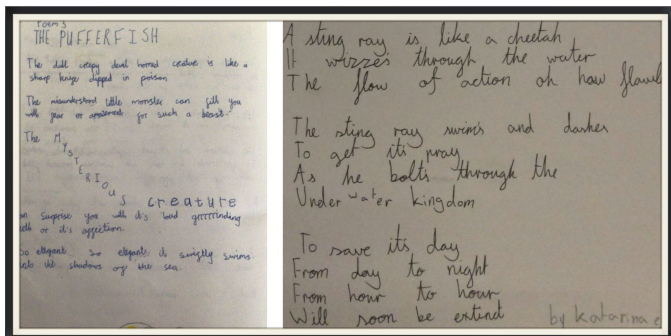 Poem 3
THE PUFFERFISH
The dull creepy devil horned creature is like a
sharp knife dipped in poison
The misunderstood little monster can fill you
with fear or amusement for such a beast.
The MYSTERIOUS
creature
can surprise you with it's loud grrrrrinding
or it's affection.
so elegant so elegant it swiftly swims
into the shadows of the sea.
A sting ray is like a cheetah
It wizzes through the water
The flow of action oh how
The sting ray swims and dashes
To get its pray
As he bolts through the
Underwater kingdom
To save its day
From day to night
From hour to hour
Will soon be extind
by Katarina